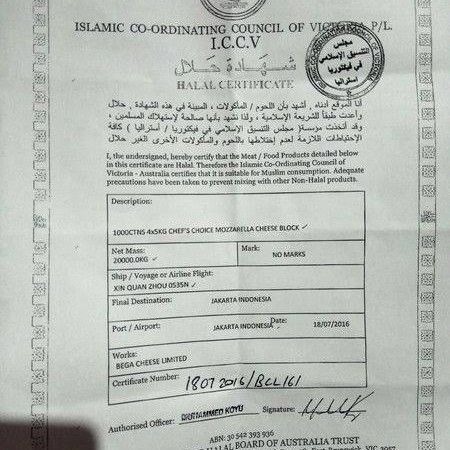 ISLAMIC CO-ORDINATING COUNCIL OF VICTORIA P/L.
I.C.C.V
شهادة حلال
HALAL CERTIFICATE
مجلس
التنسيق الإسلامي
في فيكتوريا
أستراليا
أنا الموقع أدناه , أشهد بأن اللحوم , المأكولات , المبينة في هذه الشهادة , حلال
وأعدت طبقاً للشريعة الإسلامية , ولذا نشهد بأنها صالحة لإستهلاك المسلمين ,
وقد أتخذت مؤسسة( مجلس التنسيق الإسلامي في فيكتوريا / أستراليا ) كافة
الإحتياطات اللازمة لعدم إختلاطها باللحوم والمأكولات الأخرى الغير حلال
I, the undersigned, hereby certify that the Meat / Food Products detailed below
in this certificate are Halal. Therefore the Islamic Co-Ordinating Council of
Victoria - Australia certifies that it is suitable for Muslim consumption. Adequate
precautions have been taken to prevent mixing with other Non-Halal products.
Description:
1000CTNS 4x5KG CHEF'S CHOICE MOZZARELLA CHEESE BLOCK
Net Mass: Mark:
20000.0KG NO MARKS
Ship / Voyage or Airline Flight:
XIN QUAN ZHOU 0535N
Final Destination: JAKARTA INDONESIA
Port / Airport: JAKARTA INDONESIA Date: 18/07/2016
Works:
BEGA CHEESE LIMITED
Certificate Number: 18072016/BCL161
Authorised Officer: MUHAMMED KOYU Signature:
ABN: 30 542 393 936
HALAL BOARD OF AUSTRALIA TRUST